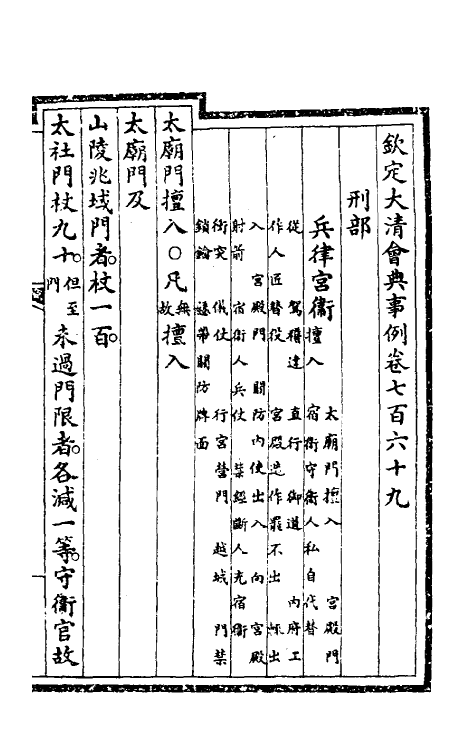 欽定大清會典事例卷七百六十九
刑部
兵律宮衞
太廟門擅入 宮殿門
擅入 宿衞守衞人私自代替
從 駕稽違 直行 御道 內府工
作人匠替役 宮殿造作罷不出 輒出
入 宮殿門 關防內使出入 向 宮殿
射箭 宿衞人兵仗 禁經斷人充宿衞
衝突 儀仗 行宮營門 越城 門禁
鎖鑰 懸帶關防牌面
太廟門擅入○凡無故擅入
太廟門及
山陵兆域門者。杖一百。
太社門杖九十。但至門未過門限者。各減一等。守衞官故